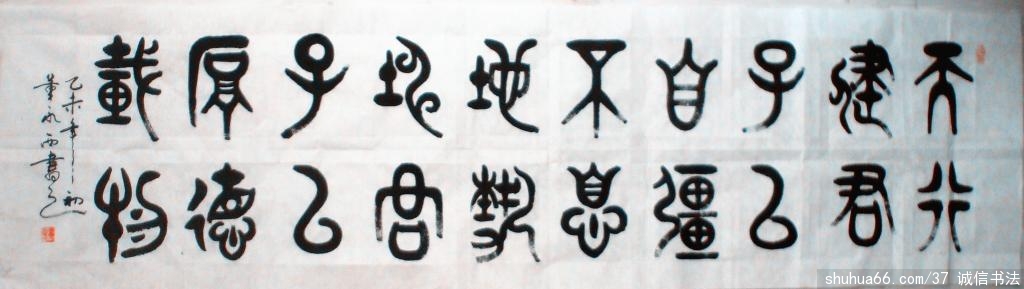 天行
健君
子以
自彊
不息
地勢
坤君
子以
厚德
載物
乙未年初
董永西書
shuhua66.com/37 诚信书法